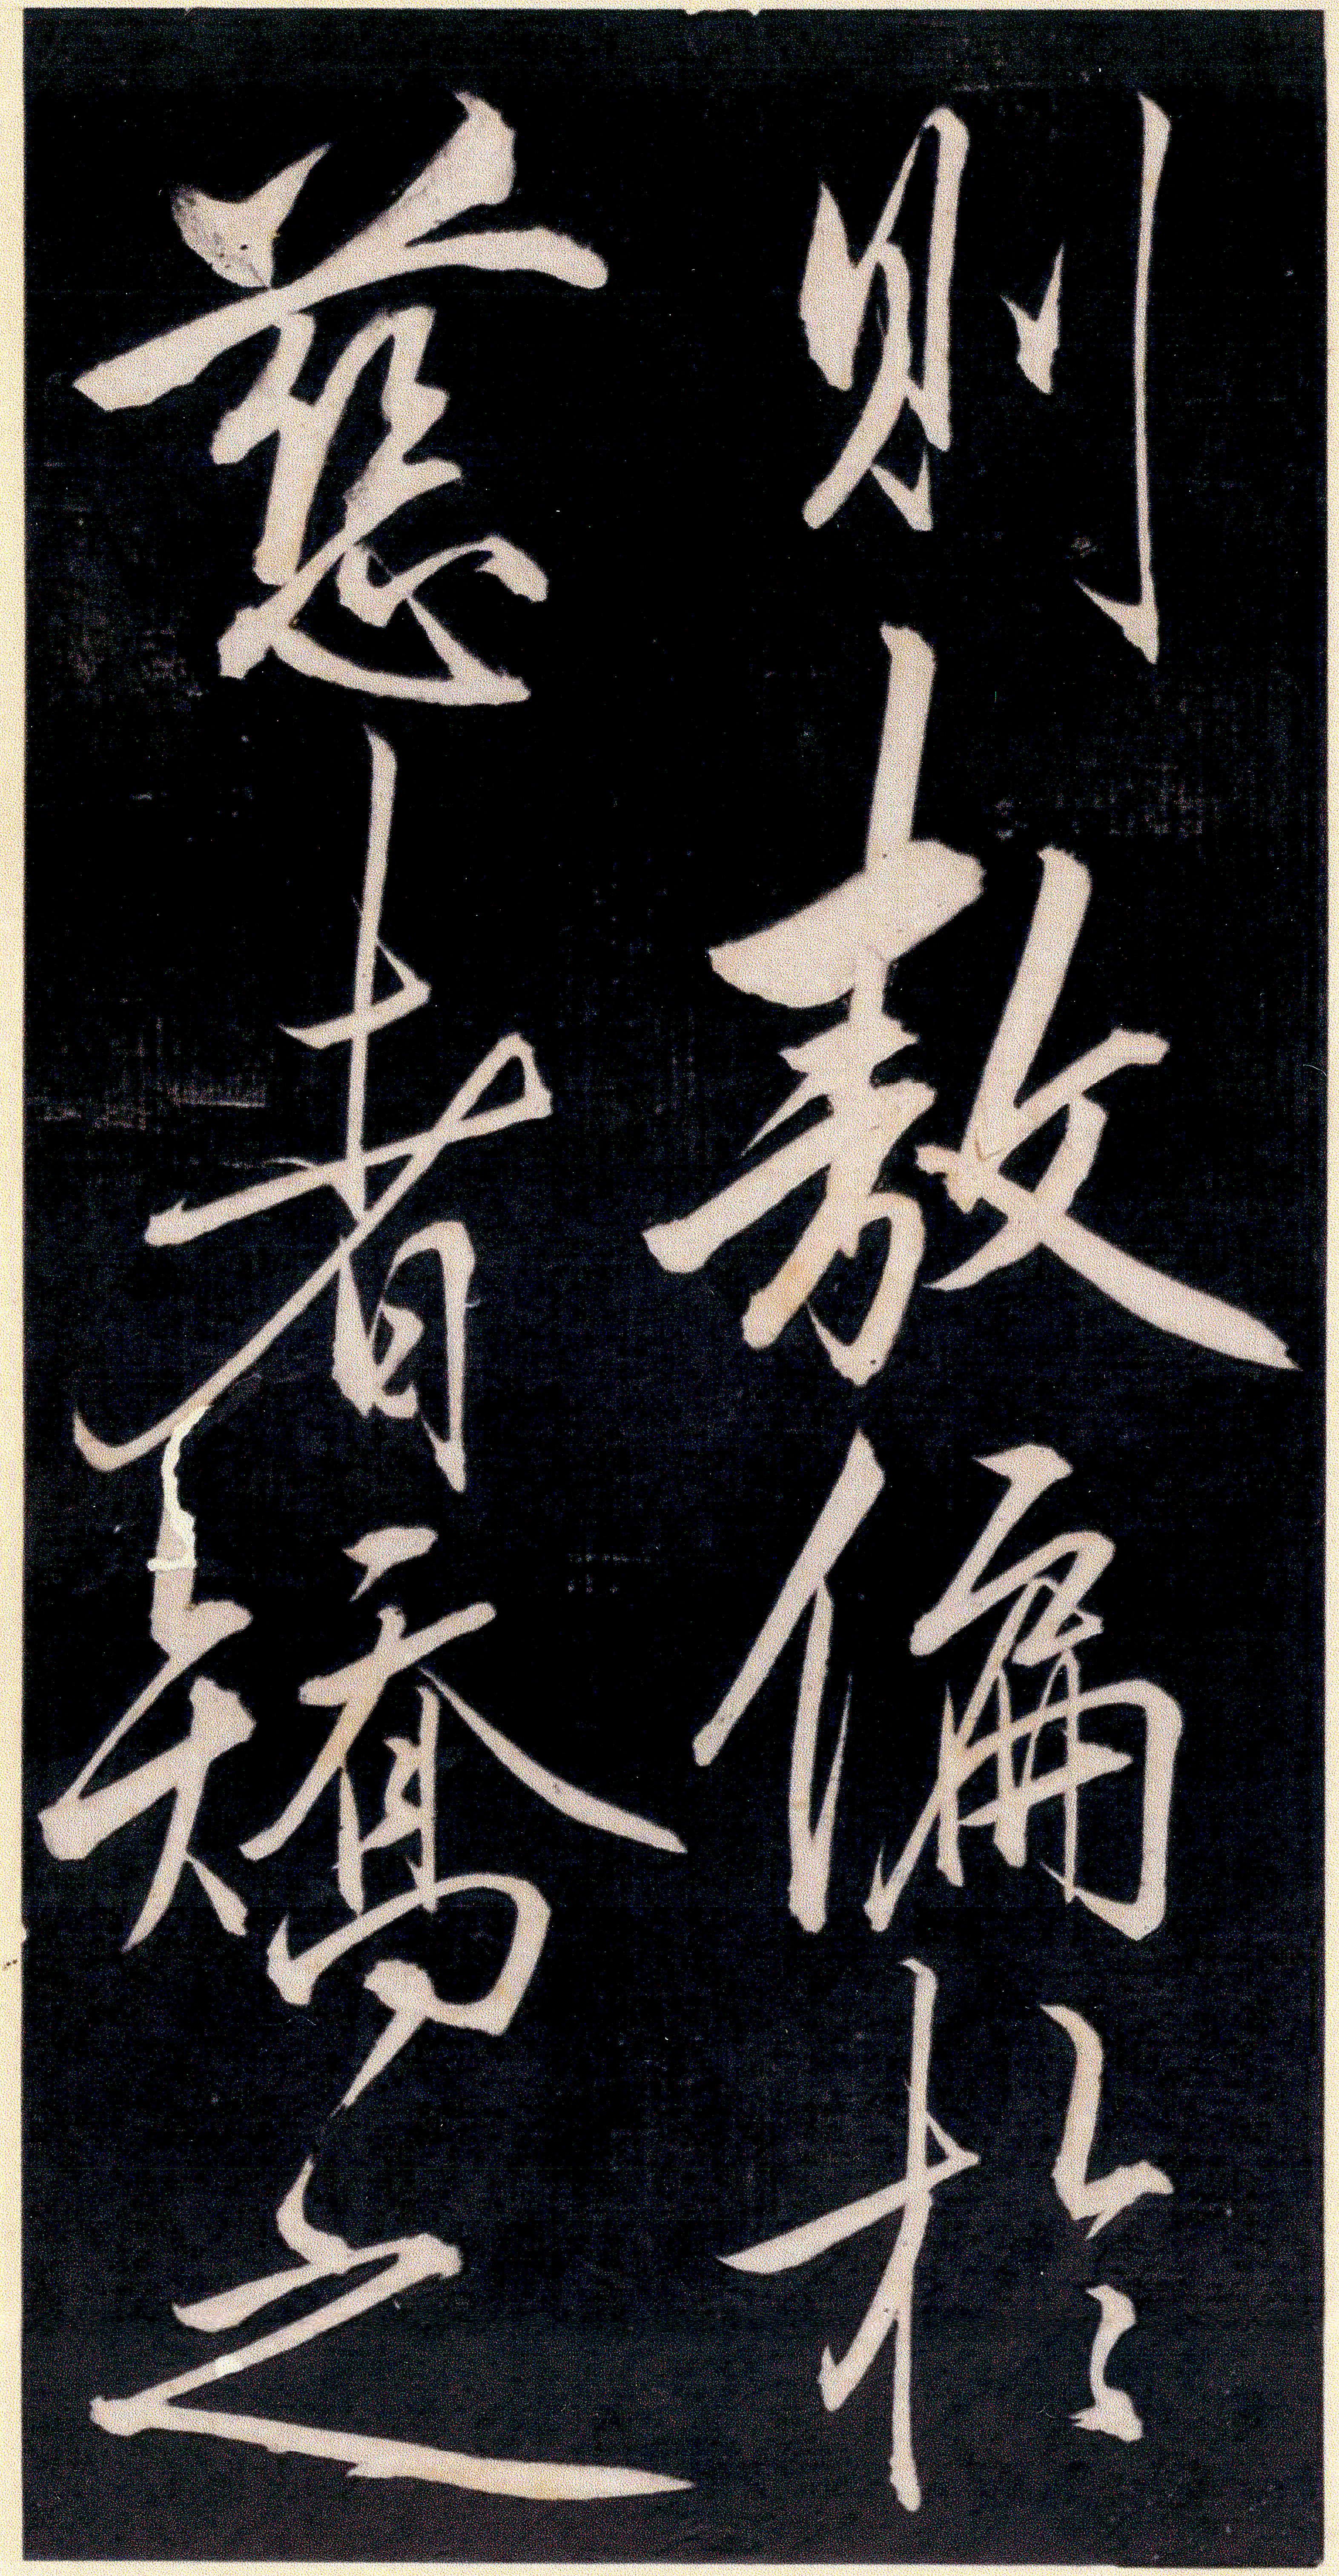 則敖偏於
慈者矯之